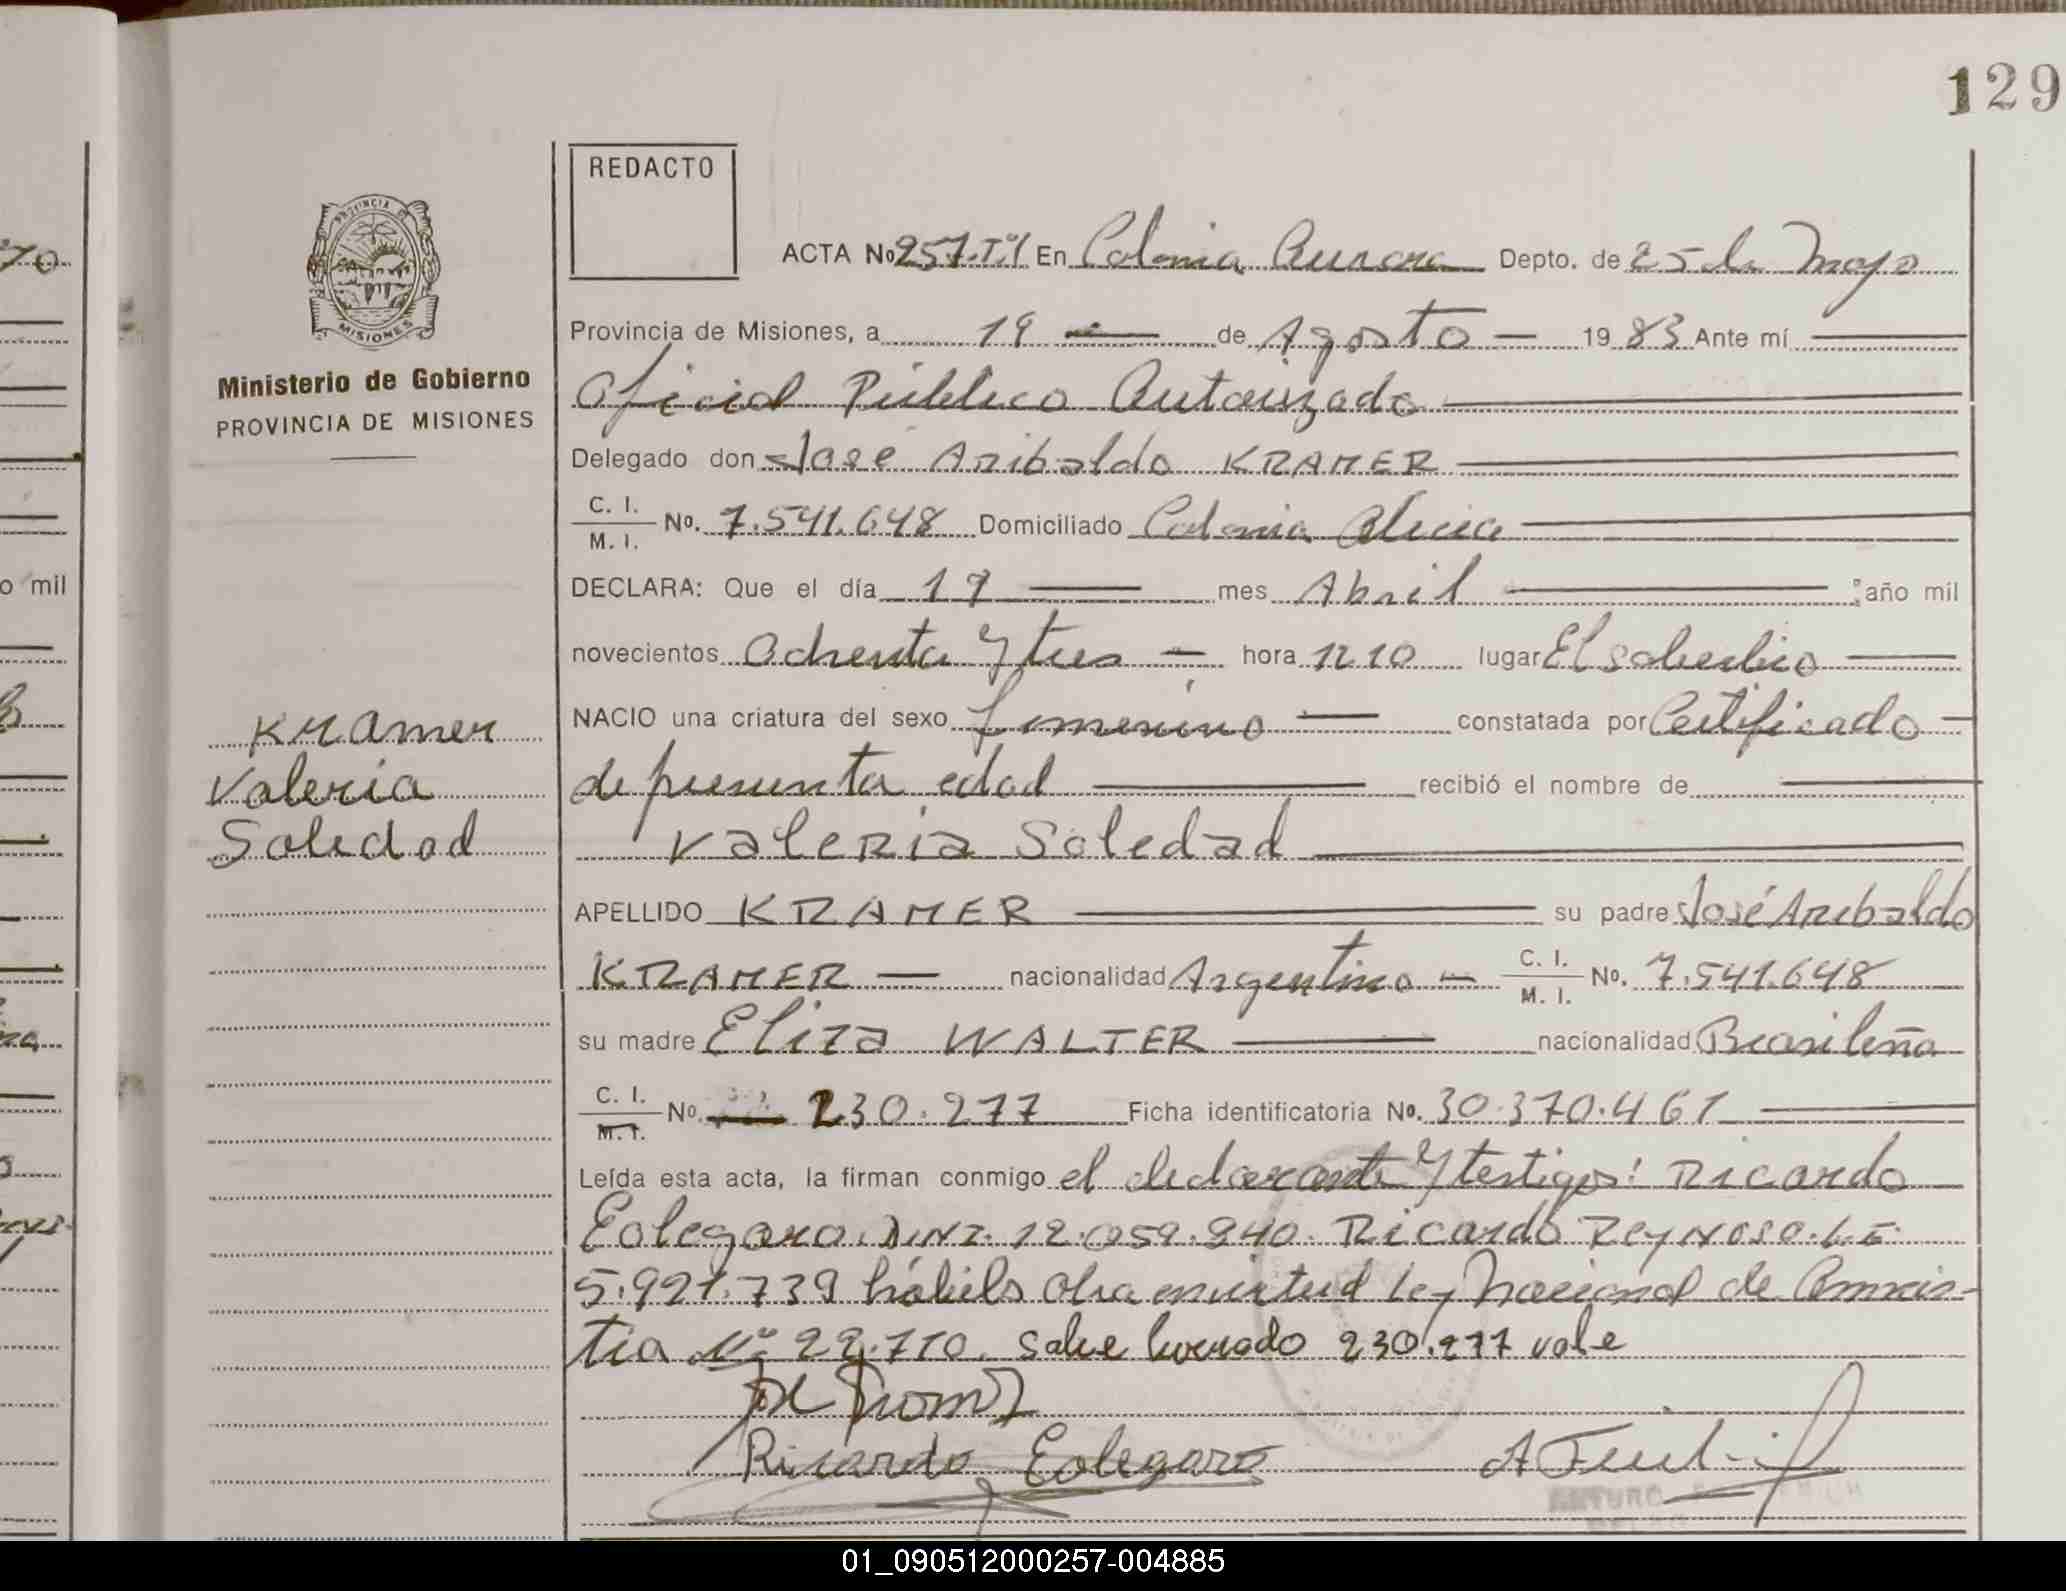 129
REDACTO
PROVINCIA DE
MISIONES
ACTA No 257.Tº1 En Colonia Aurora Depto. de 25 de Mayo
Provincia de Misiones, a 19 de Agosto 1983 Ante mí
Oficial Público Autorizado
Ministerio de Gobierno
PROVINCIA DE MISIONES
Delegado don José Aribaldo KRAMER
C. I.
M. I.
No. 7.541.648 Domiciliado Colonia Alicia
DECLARA: Que el día 17 mes Abril año mil
novecientos Ochenta y tres hora 1210 lugar El soberbio
NACIO una criatura del sexo femenino constatada por Certificado
de presunta edad recibió el nombre de
Valeria Soledad
Kramer
Valeria
Soledad
APELLIDO KRAMER su padre José Aribaldo
KRAMER nacionalidad Argentino C. I.
M. I.
No. 7.541.648
su madre Eliza WALTER nacionalidad Brasileña
C. I.
M. I.
No. 230.277 Ficha identificatoria No. 30.370.461
Leída esta acta, la firman conmigo el declarante y testigos: Ricardo
Eolegaro. D.N.I. 12.059.240. Ricardo Reynoso. L.E.
5.921.739 hábiles Obra en virtud Ley Nacional de Amnis-
tia Nº 22.710. Salve borrado 230.277 vale
Ricardo Eolegaro
ARTURO
o mil
01_090512000257-004885